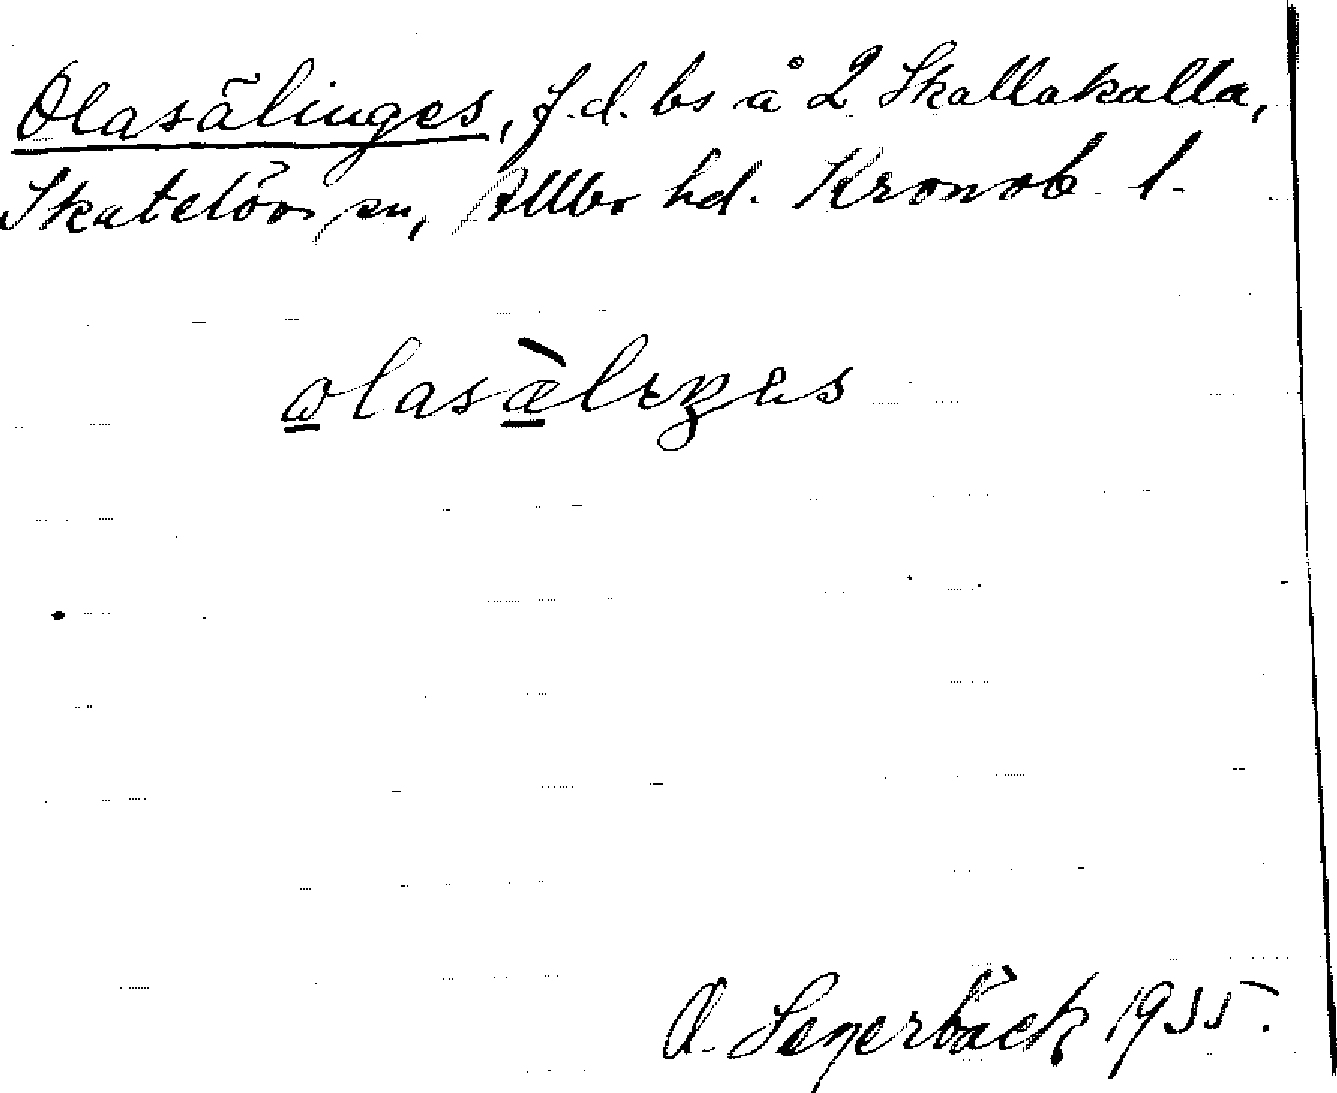 Olasälinges, f.d. bs å 2 Skallakulla,
Skatelövs sn, Allbo hd. Kronob. l.
ɷlasæ̀lɩŋɛs
O. Segerbäck 1955.